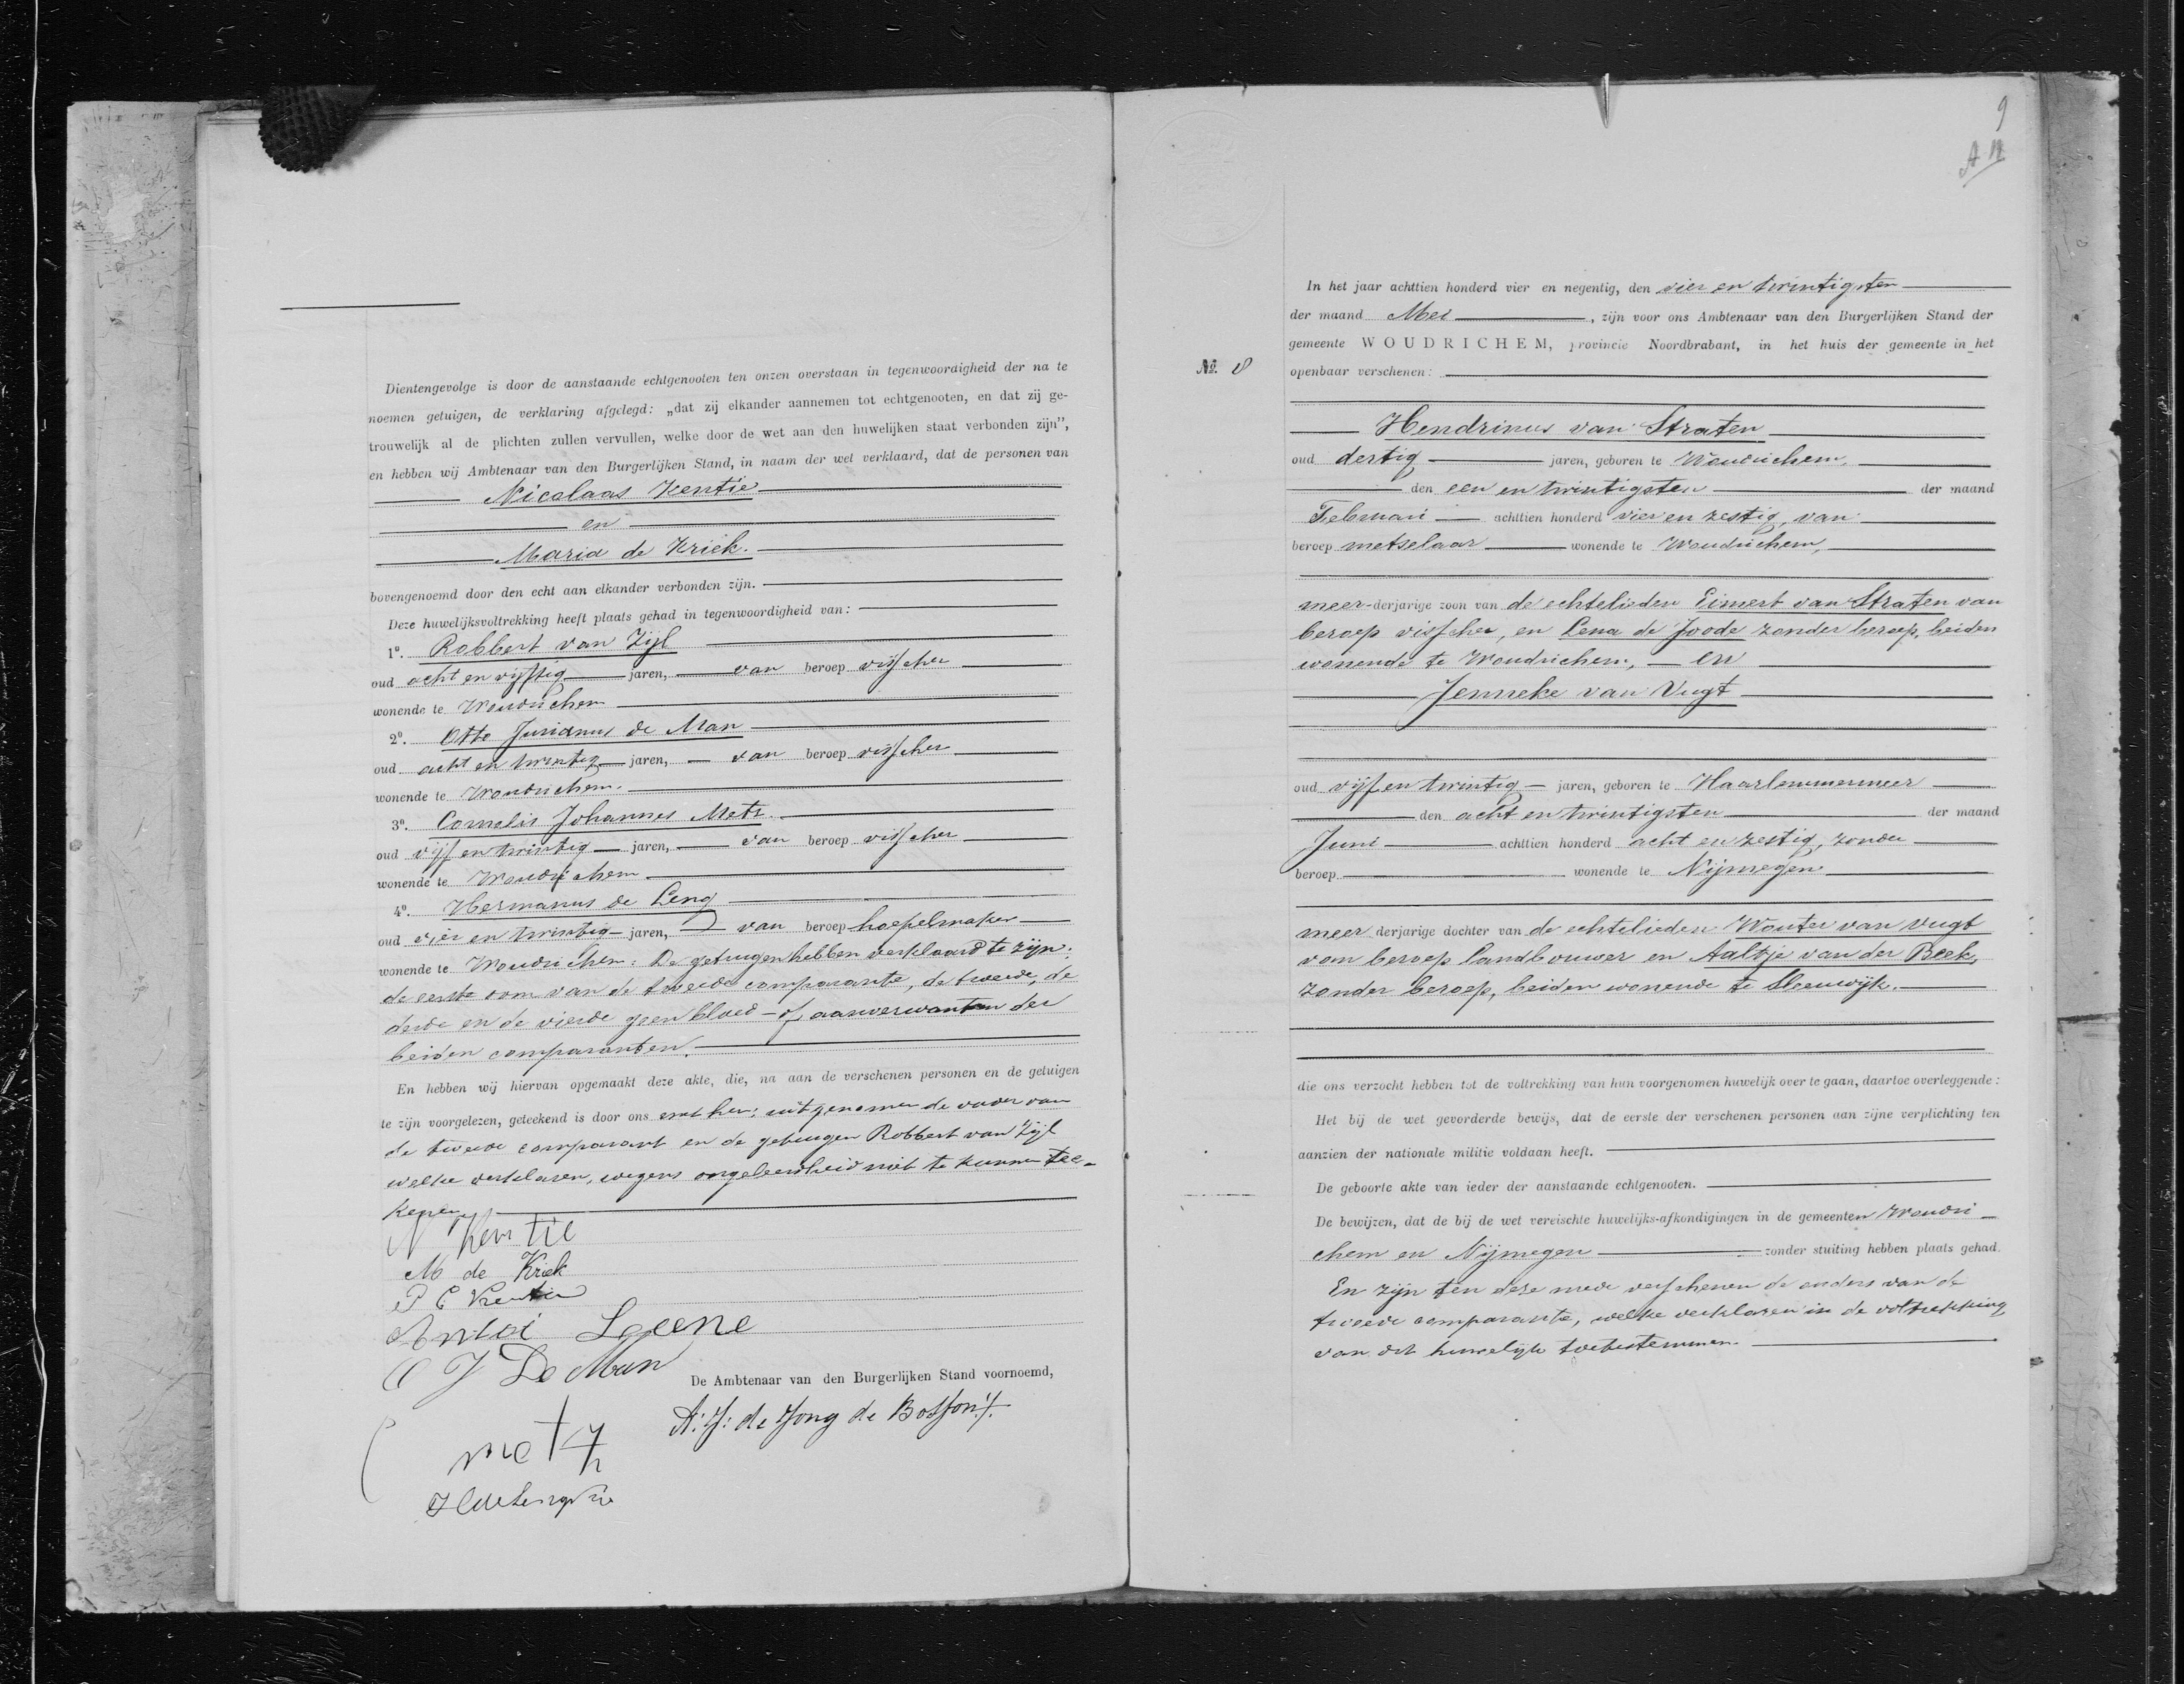 Dientengevolge is door de aanstaande echtgenooten ten onzen overstaan in tegenwoordigheid der na te
noemen getuigen, de verklaring afgelegd: „dat zij elkander aannemen tot echtgenooten, en dat zij ge-
trouwelijk al de plichten zullen vervullen, welke door de wet aan den huwelijken staat verbonden zijn”,
en hebben wij Ambtenaar van den Burgerlijken Stand, in naam der wet verklaard, dat de personen van
Nicolaas Kentie
en
Maria de Kriek.
bovengenoemd door den echt aan elkander verbonden zijn.
Deze huwelijksvoltrekking heeft plaats gehad in tegenwoordigheid van:
1º. Robbert van Zijl
oud acht en vijftig jaren, van beroep visscher
wonende te Woudrichem
2º. Otto Jurianus de Man
oud acht en twintig jaren, van beroep visscher
wonende te Woudrichem.
3º. Cornelis Johannes Metz
oud vijf en twintig jaren, van beroep visscher
wonende te Woudrichem
4º. Hermanus de Leng
oud vier en twintig jaren, van beroep hoepelmaker
wonende te Woudrichem. De getuigen hebben verklaard te zijn:
de eerste oom van de tweede comparante, de tweede, de
derde en de vierde geen bloed- of aanverwanten der
beiden comparanten.
En hebben wij hiervan opgemaakt deze akte, die, na aan de verschenen personen en de getuigen
te zijn voorgelezen, geteekend is door ons en hen; uitgenomen de vader van
de tweede comparant en de getuigen Robbert van Zijl
welke verklaren, wegens ongeleerdheid niet te kunnen tee-
kenen
N Kentie
M de Kriek
P C Kentie
Antoi
O J De Man
De Ambtenaar van den Burgerlijken Stand voornoemd,
A. J. de Jong de Bosson
metz
9
A
In het jaar achttien honderd vier en negentig, den vier en twintigsten
der maand Mei, zijn voor ons Ambtenaar van den Burgerlijken Stand der
gemeente WOUDRICHEM, provincie Noordbrabant, in het huis der gemeente in het
Nº. 8 openbaar verschenen:
Hendrinus van Straten
oud dertig jaren, geboren te Woudrichem,
den een en twintigsten der maand
Februari achttien honderd vier en zestig, van
beroep metselaar wonende te Woudrichem,
meer-derjarige zoon van de echtelieden Eimert van Straten van
beroep visscher, en Lena de Joode zonder beroep, beiden
wonende te Woudrichem, en
Jenneke van Vugt
oud vijf en twintig jaren, geboren te Haarlemmermeer
den acht en twintigsten der maand
Juni achttien honderd acht en zestig, zonder
beroep wonende te Nijmegen
meer derjarige dochter van de echtelieden Wouter van Vugt
van beroep landbouwer en Aaltje van der Beek,
zonder beroep, beiden wonende te Sleeuwijk.
die ons verzocht hebben tot de voltrekking van hun voorgenomen huwelijk over te gaan, daartoe overleggende:
Het bij de wet gevorderde bewijs, dat de eerste der verschenen personen aan zijne verplichting ten
aanzien der nationale militie voldaan heeft.
De geboorte akte van ieder der aanstaande echtgenooten.
De bewijzen, dat de bij de wet vereischte huwelijks-afkondigingen in de gemeenten Woudri-
chem en Nijmegen zonder stuiting hebben plaats gehad.
En zijn ten deze mede verschenen de ouders van de
tweede comparante, welke verklaren in de voltrekking
van dit huwelijk toetestemmen.